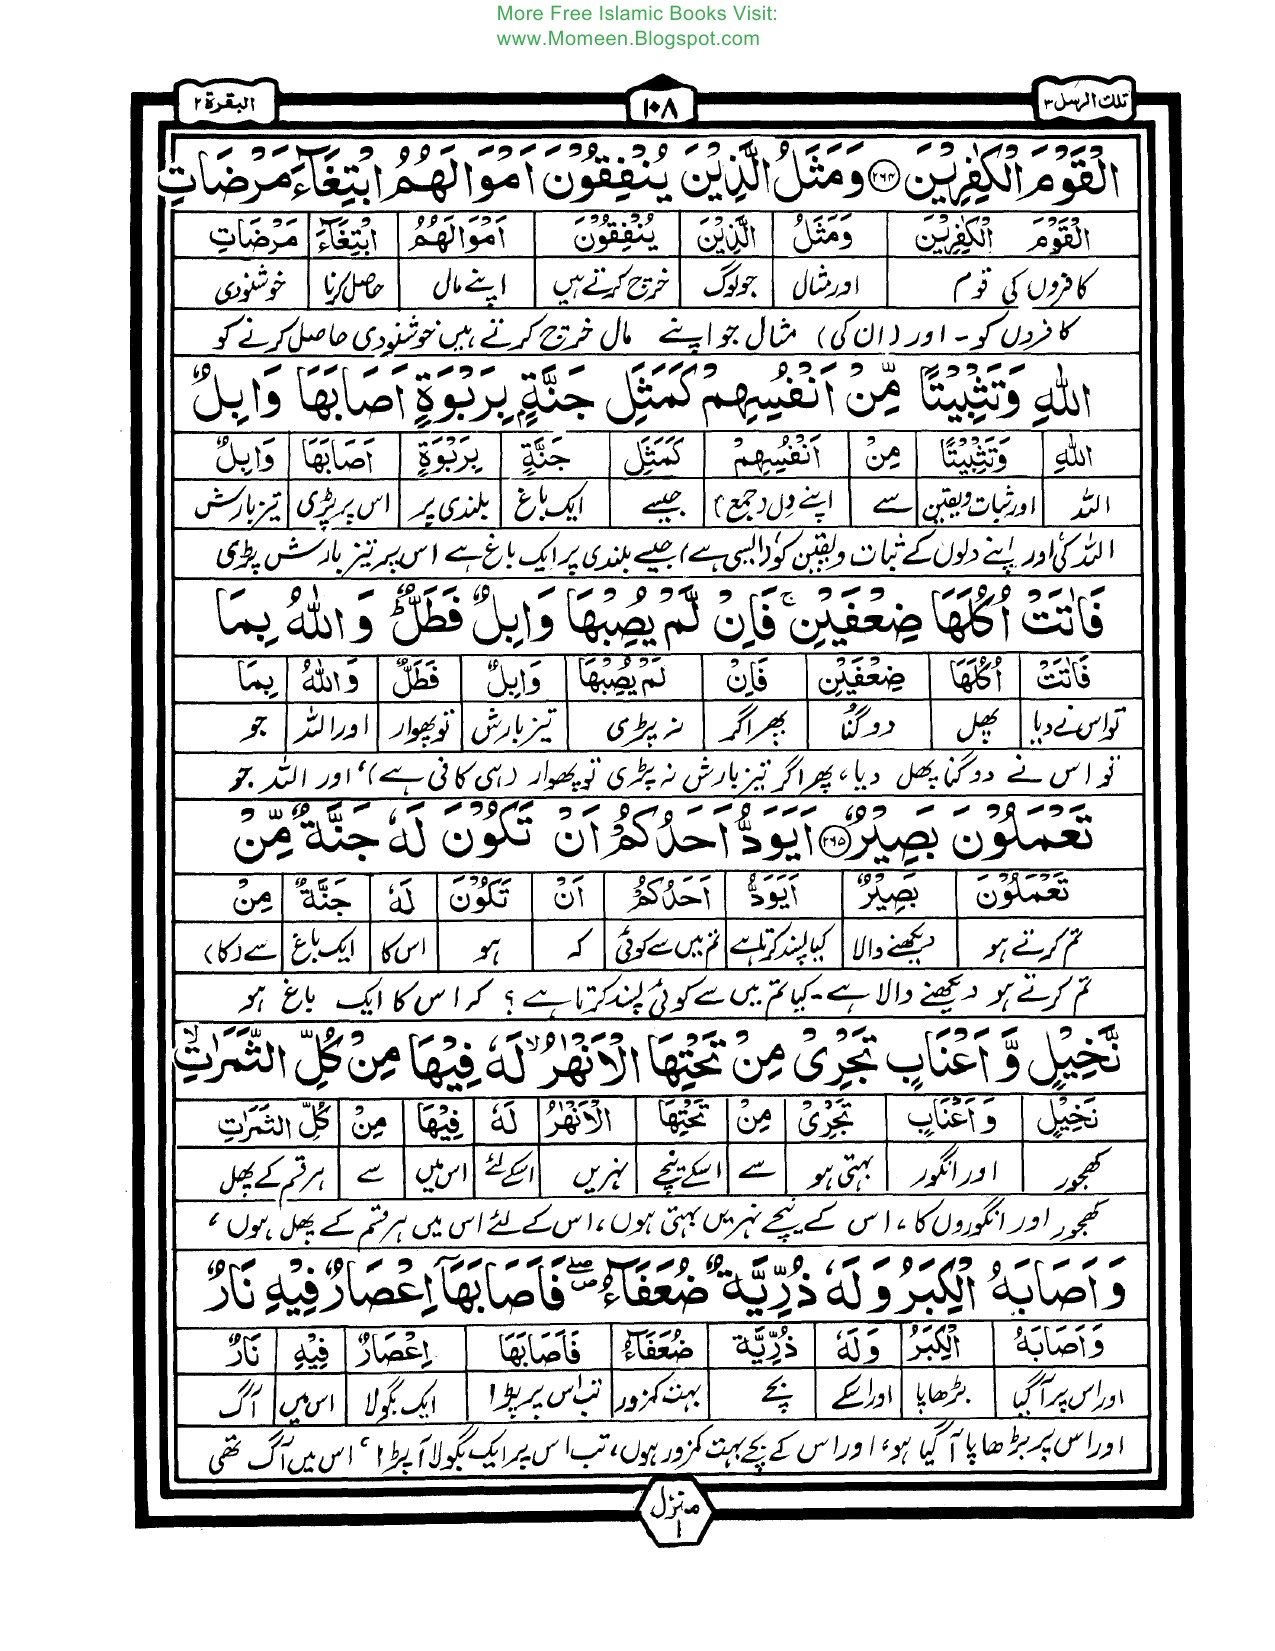 More Free Islamic Books Visit:
www.Momeen.Blogspot.com
تلك الرسل ۳
۱۰۸
البقرة ۲
الْقَوْمَ الْكٰفِرِيْنَ ۲۶۴ وَمَثَلُ الَّذِيْنَ يُنْفِقُوْنَ اَمْوَالَهُمُ ابْتِغَآءَ مَرْضَاتِ
الْقَوْمَ الْكٰفِرِيْنَ وَمَثَلُ الَّذِيْنَ يُنْفِقُوْنَ اَمْوَالَهُمُ ابْتِغَآءَ مَرْضَاتِ
کافروں کی قوم اور مثال جو لوگ خرچ کرتے ہیں اپنے مال حاصل کرنا خوشنودی
کافروں کو۔ اور (ان کی) مثال جو اپنے مال خرچ کرتے ہیں خوشنودی حاصل کرنے کو
اللهِ وَتَثْبِيْتًا مِّنْ اَنْفُسِهِمْ كَمَثَلِ جَنَّةٍۭ بِرَبْوَةٍ اَصَابَهَا وَابِلٌ
اللهِ وَتَثْبِيْتًا مِنْ اَنْفُسِهِمْ كَمَثَلِ جَنَّةٍ بِرَبْوَةٍ اَصَابَهَا وَابِلٌ
اللہ اور ثبات ویقین سے اپنے دل (جمع) جیسے ایک باغ بلندی پر اس پر پڑی تیز بارش
اللہ کی اور اپنے دلوں کے ثبات ویقین کو (ایسی ہے) جیسے بلندی پر ایک باغ ہے اس پر تیز بارش پڑی
فَاٰتَتْ اُكُلَهَا ضِعْفَيْنِ ۚ فَاِنْ لَّمْ يُصِبْهَا وَابِلٌ فَطَلٌّ ؕ وَاللهُ بِمَا
فَاٰتَتْ اُكُلَهَا ضِعْفَيْنِ فَاِنْ لَمْ يُصِبْهَا وَابِلٌ فَطَلٌّ وَاللهُ بِمَا
تو اس نے دیا پھل دوگنا پھر اگر نہ پڑی تیز بارش تو پھوار اور اللہ جو
تو اس نے دوگنا پھل دیا، پھر اگر تیز بارش نہ پڑی تو پھوار (ہی کافی ہے)، اور اللہ جو
تَعْمَلُوْنَ بَصِيْرٌ ۲۶۵ اَيَوَدُّ اَحَدُكُمْ اَنْ تَكُوْنَ لَهٗ جَنَّةٌ مِّنْ
تَعْمَلُوْنَ بَصِيْرٌ اَيَوَدُّ اَحَدُكُمْ اَنْ تَكُوْنَ لَهٗ جَنَّةٌ مِنْ
تم کرتے ہو دیکھنے والا کیا پسند کرتا ہے تم میں سے کوئی کہ ہو اس کا ایک باغ سے (کا)
تم کرتے ہو دیکھنے والا ہے۔ کیا تم میں سے کوئی پسند کرتا ہے؟ کہ اس کا ایک باغ ہو
نَّخِيْلٍ وَّاَعْنَابٍ تَجْرِيْ مِنْ تَحْتِهَا الْاَنْهٰرُ ۙ لَهٗ فِيْهَا مِنْ كُلِّ الثَّمَرٰتِ ۙ
نَخِيْلٍ وَاَعْنَابٍ تَجْرِيْ مِنْ تَحْتِهَا الْاَنْهٰرُ لَهٗ فِيْهَا مِنْ كُلِّ الثَّمَرٰتِ
کھجور اور انگور بہتی ہو سے اسکے نیچے نہریں اسکے لئے اس میں سے ہر قسم کے پھل
کھجور اور انگوروں کا، اس کے نیچے نہریں بہتی ہوں، اس کے لئے اس میں ہر قسم کے پھل ہوں،
وَاَصَابَهُ الْكِبَرُ وَلَهٗ ذُرِّيَّةٌ ضُعَفَآءُ ۖ فَاَصَابَهَاۤ اِعْصَارٌ فِيْهِ نَارٌ
وَاَصَابَهُ الْكِبَرُ وَلَهٗ ذُرِّيَّةٌ ضُعَفَآءُ فَاَصَابَهَا اِعْصَارٌ فِيْهِ نَارٌ
اور اس پر آگیا بڑھاپا اور اسکے بچے بہت کمزور تب اس پر پڑا ایک بگولا اس میں آگ
اور اس پر بڑھاپا آگیا ہو، اور اس کے بچے بہت کمزور ہوں، تب اس پر ایک بگولا آپڑا، اس میں آگ تھی
منزل
۱